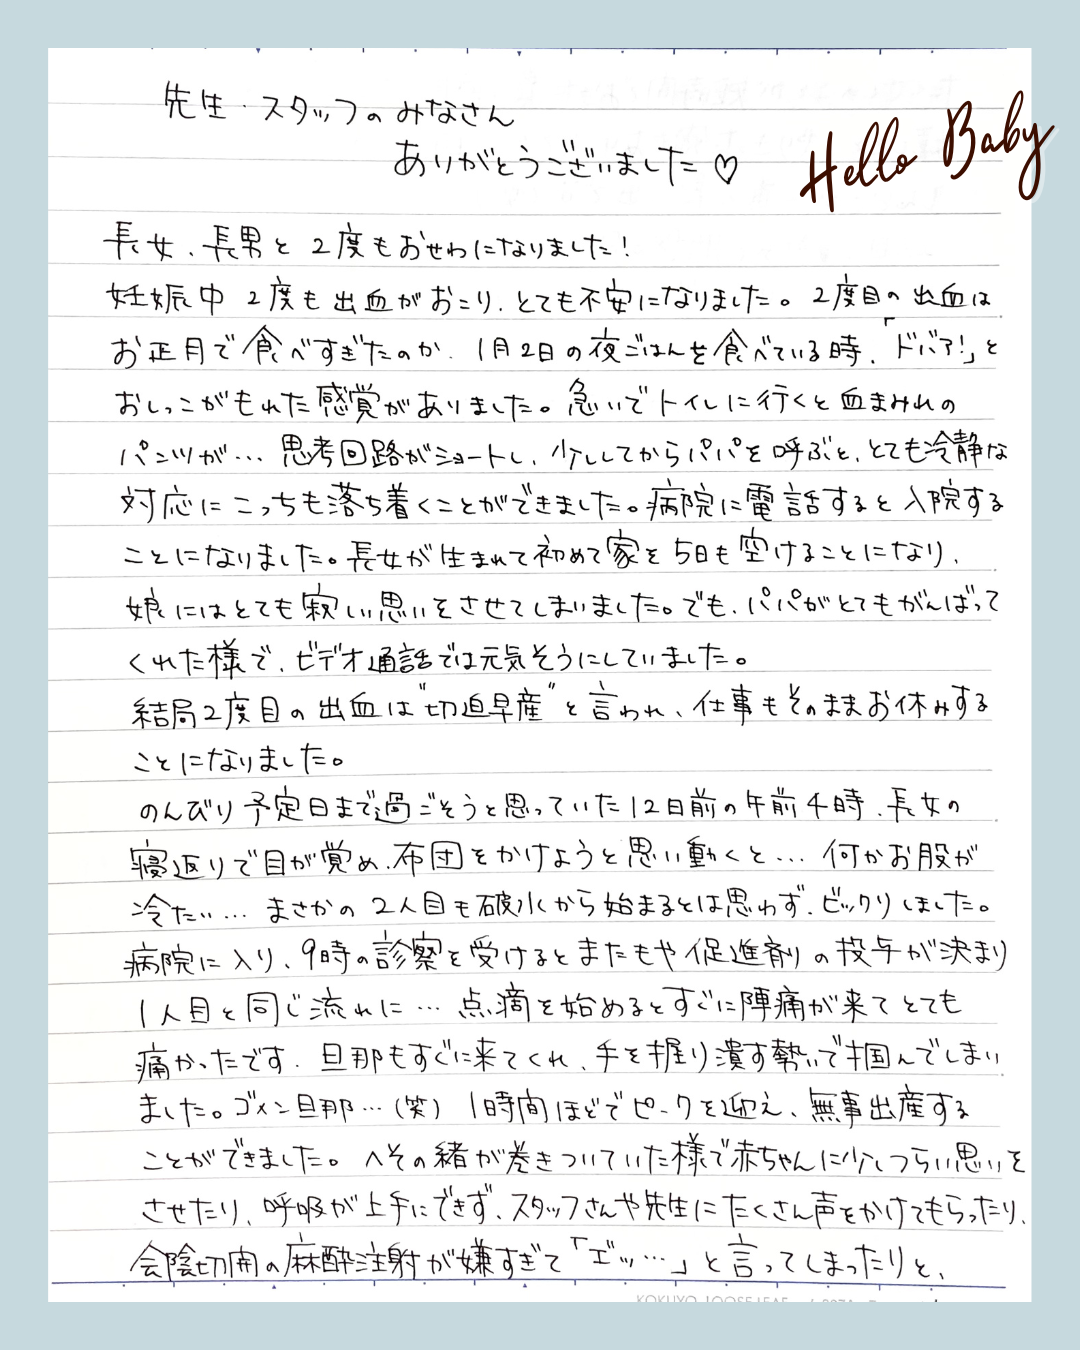 先生・スタッフのみなさん
ありがとうございました♡
Hello Baby
長女、長男と2度もおせわになりました!
妊娠中2度も出血がおこり、とても不安になりました。2度目の出血は
お正月で食べすぎたのか、1月2日の夜ごはんを食べている時、「ドバァ!」と
おしっこがもれた感覚がありました。急いでトイレに行くと血まみれの
パンツが…思考回路がショートし、少ししてからパパを呼ぶと、とても冷静な
対応にこっちも落ち着くことができました。病院に電話すると入院する
ことになりました。長女が生まれて初めて家を5日も空けることになり、
娘にはとても寂しい思いをさせてしまいました。でも、パパがとてもがんばって
くれた様で、ビデオ通話では元気そうにしていました。
結局2度目の出血は"切迫早産"と言われ、仕事もそのままお休みする
ことになりました。
のんびり予定日まで過ごそうと思っていた12日前の午前4時、長女の
寝返りで目が覚め、布団をかけようと思い動くと…何かお股が
冷たい…まさかの2人目も破水から始まるとは思わず、ビックリしました。
病院に入り、9時の診察を受けるとまたもや促進剤の投与が決まり
1人目と同じ流れに…点滴を始めるとすぐに陣痛が来てとても
痛かったです。旦那もすぐに来てくれ、手を握り潰す勢いで掴んでしまい
ました。ゴメン旦那…(笑)1時間ほどでピークを迎え、無事出産する
ことができました。へその緒が巻きついていた様で赤ちゃんに少しつらい思いを
させたり、呼吸が上手にできず、スタッフさんや先生にたくさん声をかけてもらったり、
会陰切開の麻酔注射が嫌すぎて「エ゛ッ…」と言ってしまったりと、